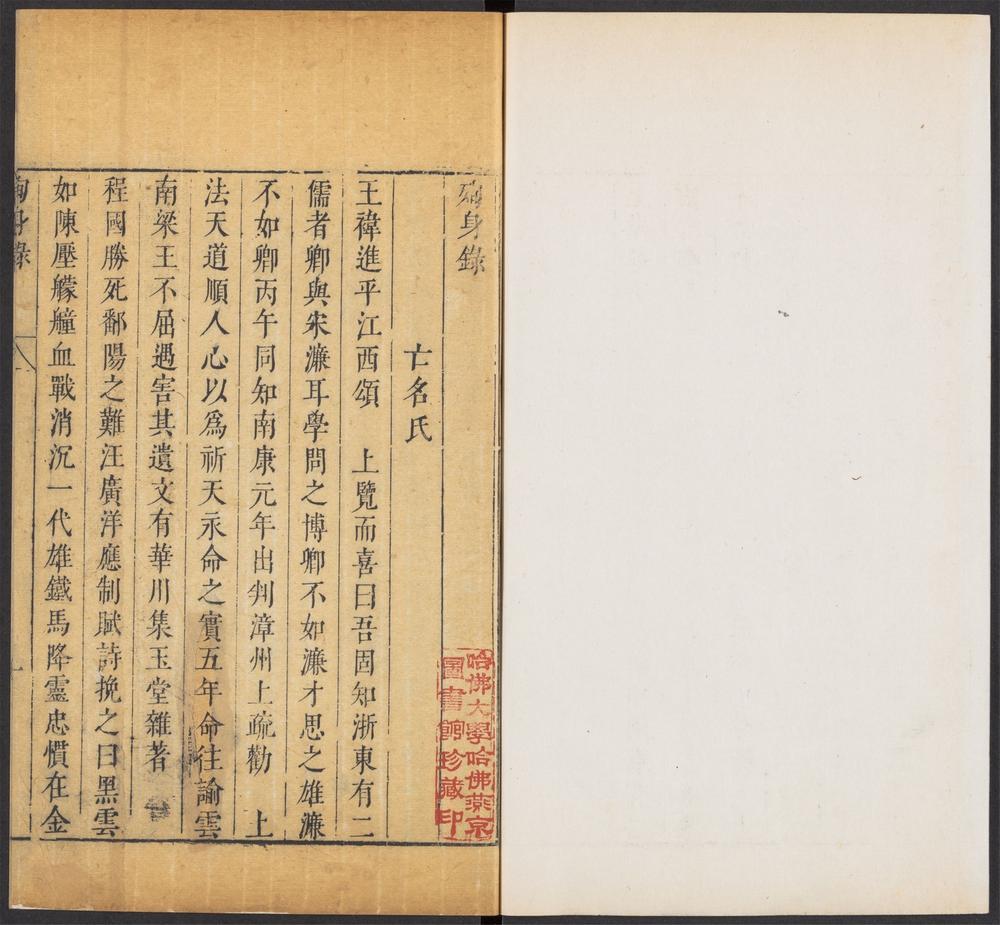 殉身錄
亡名氏
王禕進平江西頌　上覽而喜曰吾固知浙東有二
儒者卿與宋濂耳學問之博卿不如濂才思之雄濂
不如卿丙午同知南康元年出判漳州上疏勸　上
法天道順人心以爲祈天永命之實五年命往諭雲
南梁王不屈遇害其遺文有華川集玉堂雜著
程國勝死鄱陽之難汪廣洋應制賦詩挽之曰黑雲
如陳壓艨艟血戰消沉一代雄鐵馬降靈忠憤在金
身錄
一
哈佛大學哈佛燕京
圖書館珍藏印